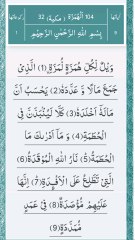 آياتها ٩ 104 الْهُمَزَة / مكية: 32 ركوعها ١
بِسْمِ اللّٰهِ الرَّحْمٰنِ الرَّحِيْمِ
وَيْلٌ لِّكُلِّ هُمَزَةٍ لُّمَزَةِۙ (1) الَّذِيْ
جَمَعَ مَالًا وَّ عَدَّدَهٗ (2) يَحْسَبُ اَنَّ
مَالَهٗۤ اَخْلَدَهٗ (3) كَلَّا لَيُنْۢبَذَنَّ فِي
الْحُطَمَةِ (4) وَ مَاۤ اَدْرٰىكَ مَا
الْحُطَمَةُ (5) نَارُ اللّٰهِ الْمُوْقَدَةُ (6)
الَّتِيْ تَطَّلِعُ عَلَى الْاَفْـِٕدَةِ (7) اِنَّهَا
عَلَيْهِمْ مُّؤْصَدَةٌ (8) فِيْ عَمَدٍ
مُّمَدَّدَةٍ (9)